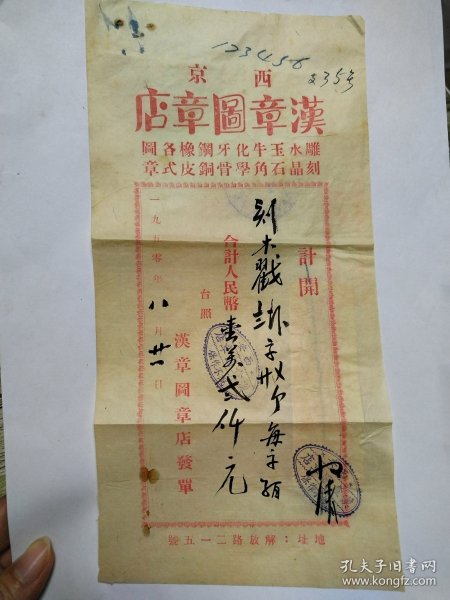 123456
235号
西京
漢章圖章店
雕水玉牛化牙鋼橡各圖
刻晶石角學骨銅皮式章
計開
刻木戳
每字
合計人民幣 壹萬弍仟元
台照
漢章圖章店發單
一九五零年八月廿一日
地址：解放路二一五號
孔夫子旧书网
www.kongfz.com